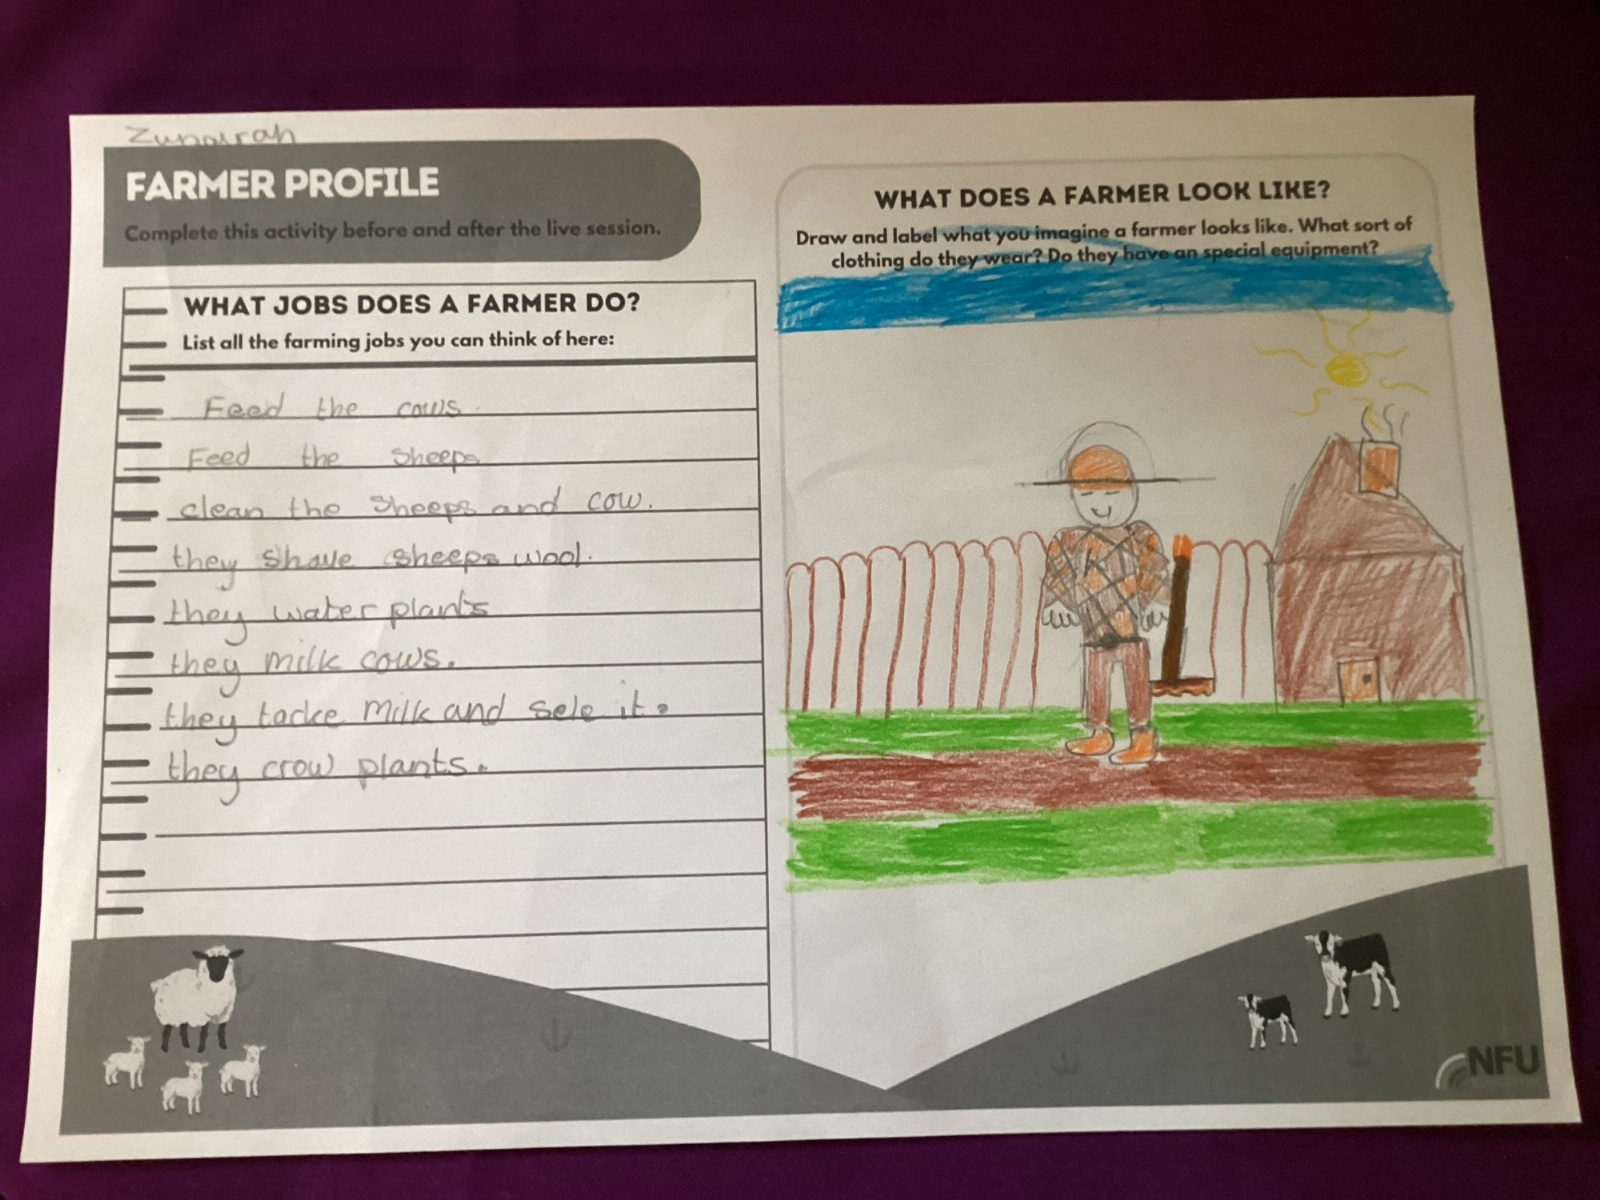 Zunairah
FARMER PROFILE
Complete this activity before and after the live session.
WHAT JOBS DOES A FARMER DO?
List all the farming jobs you can think of here:
Feed the cows.
Feed the sheeps
clean the sheeps and cow.
they shave sheeps wool.
they water plants
they milk cows.
they tacke milk and sele it.
they crow plants.
WHAT DOES A FARMER LOOK LIKE?
Draw and label what you imagine a farmer looks like. What sort of
clothing do they wear? Do they have an special equipment?
NFU